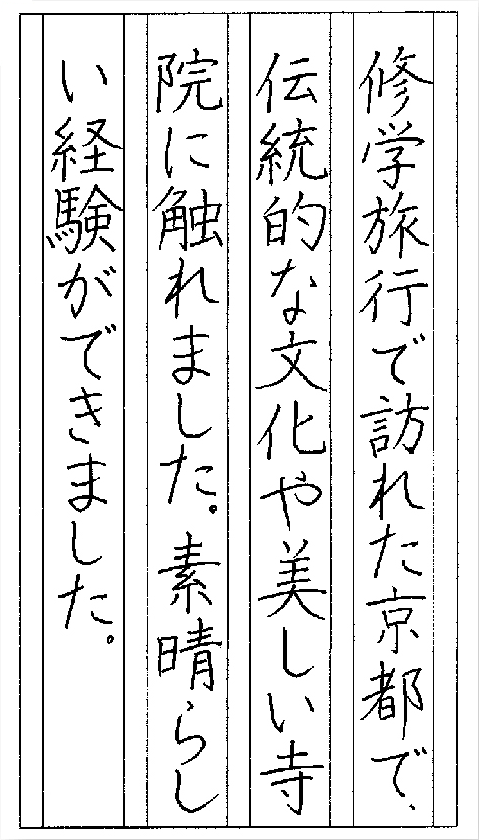 修学旅行で訪れた京都で、
伝統的な文化や美しい寺
院に触れました。素晴らし
い経験ができました。